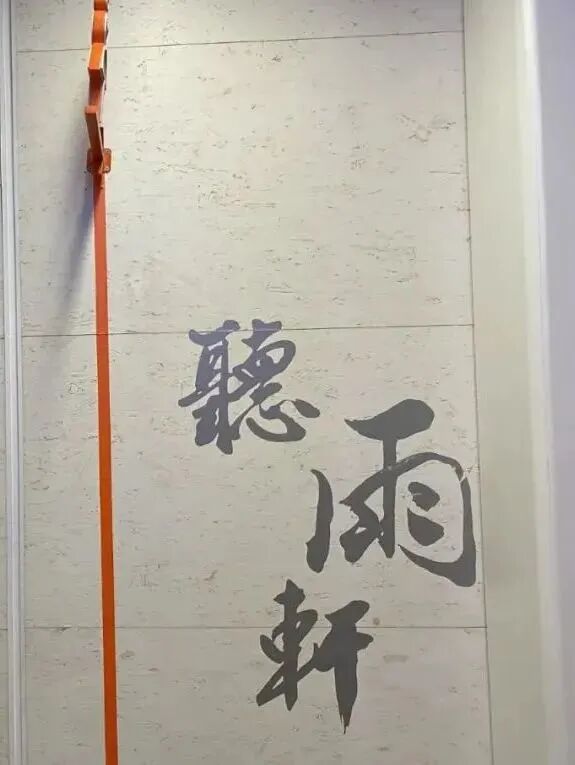 聽雨軒